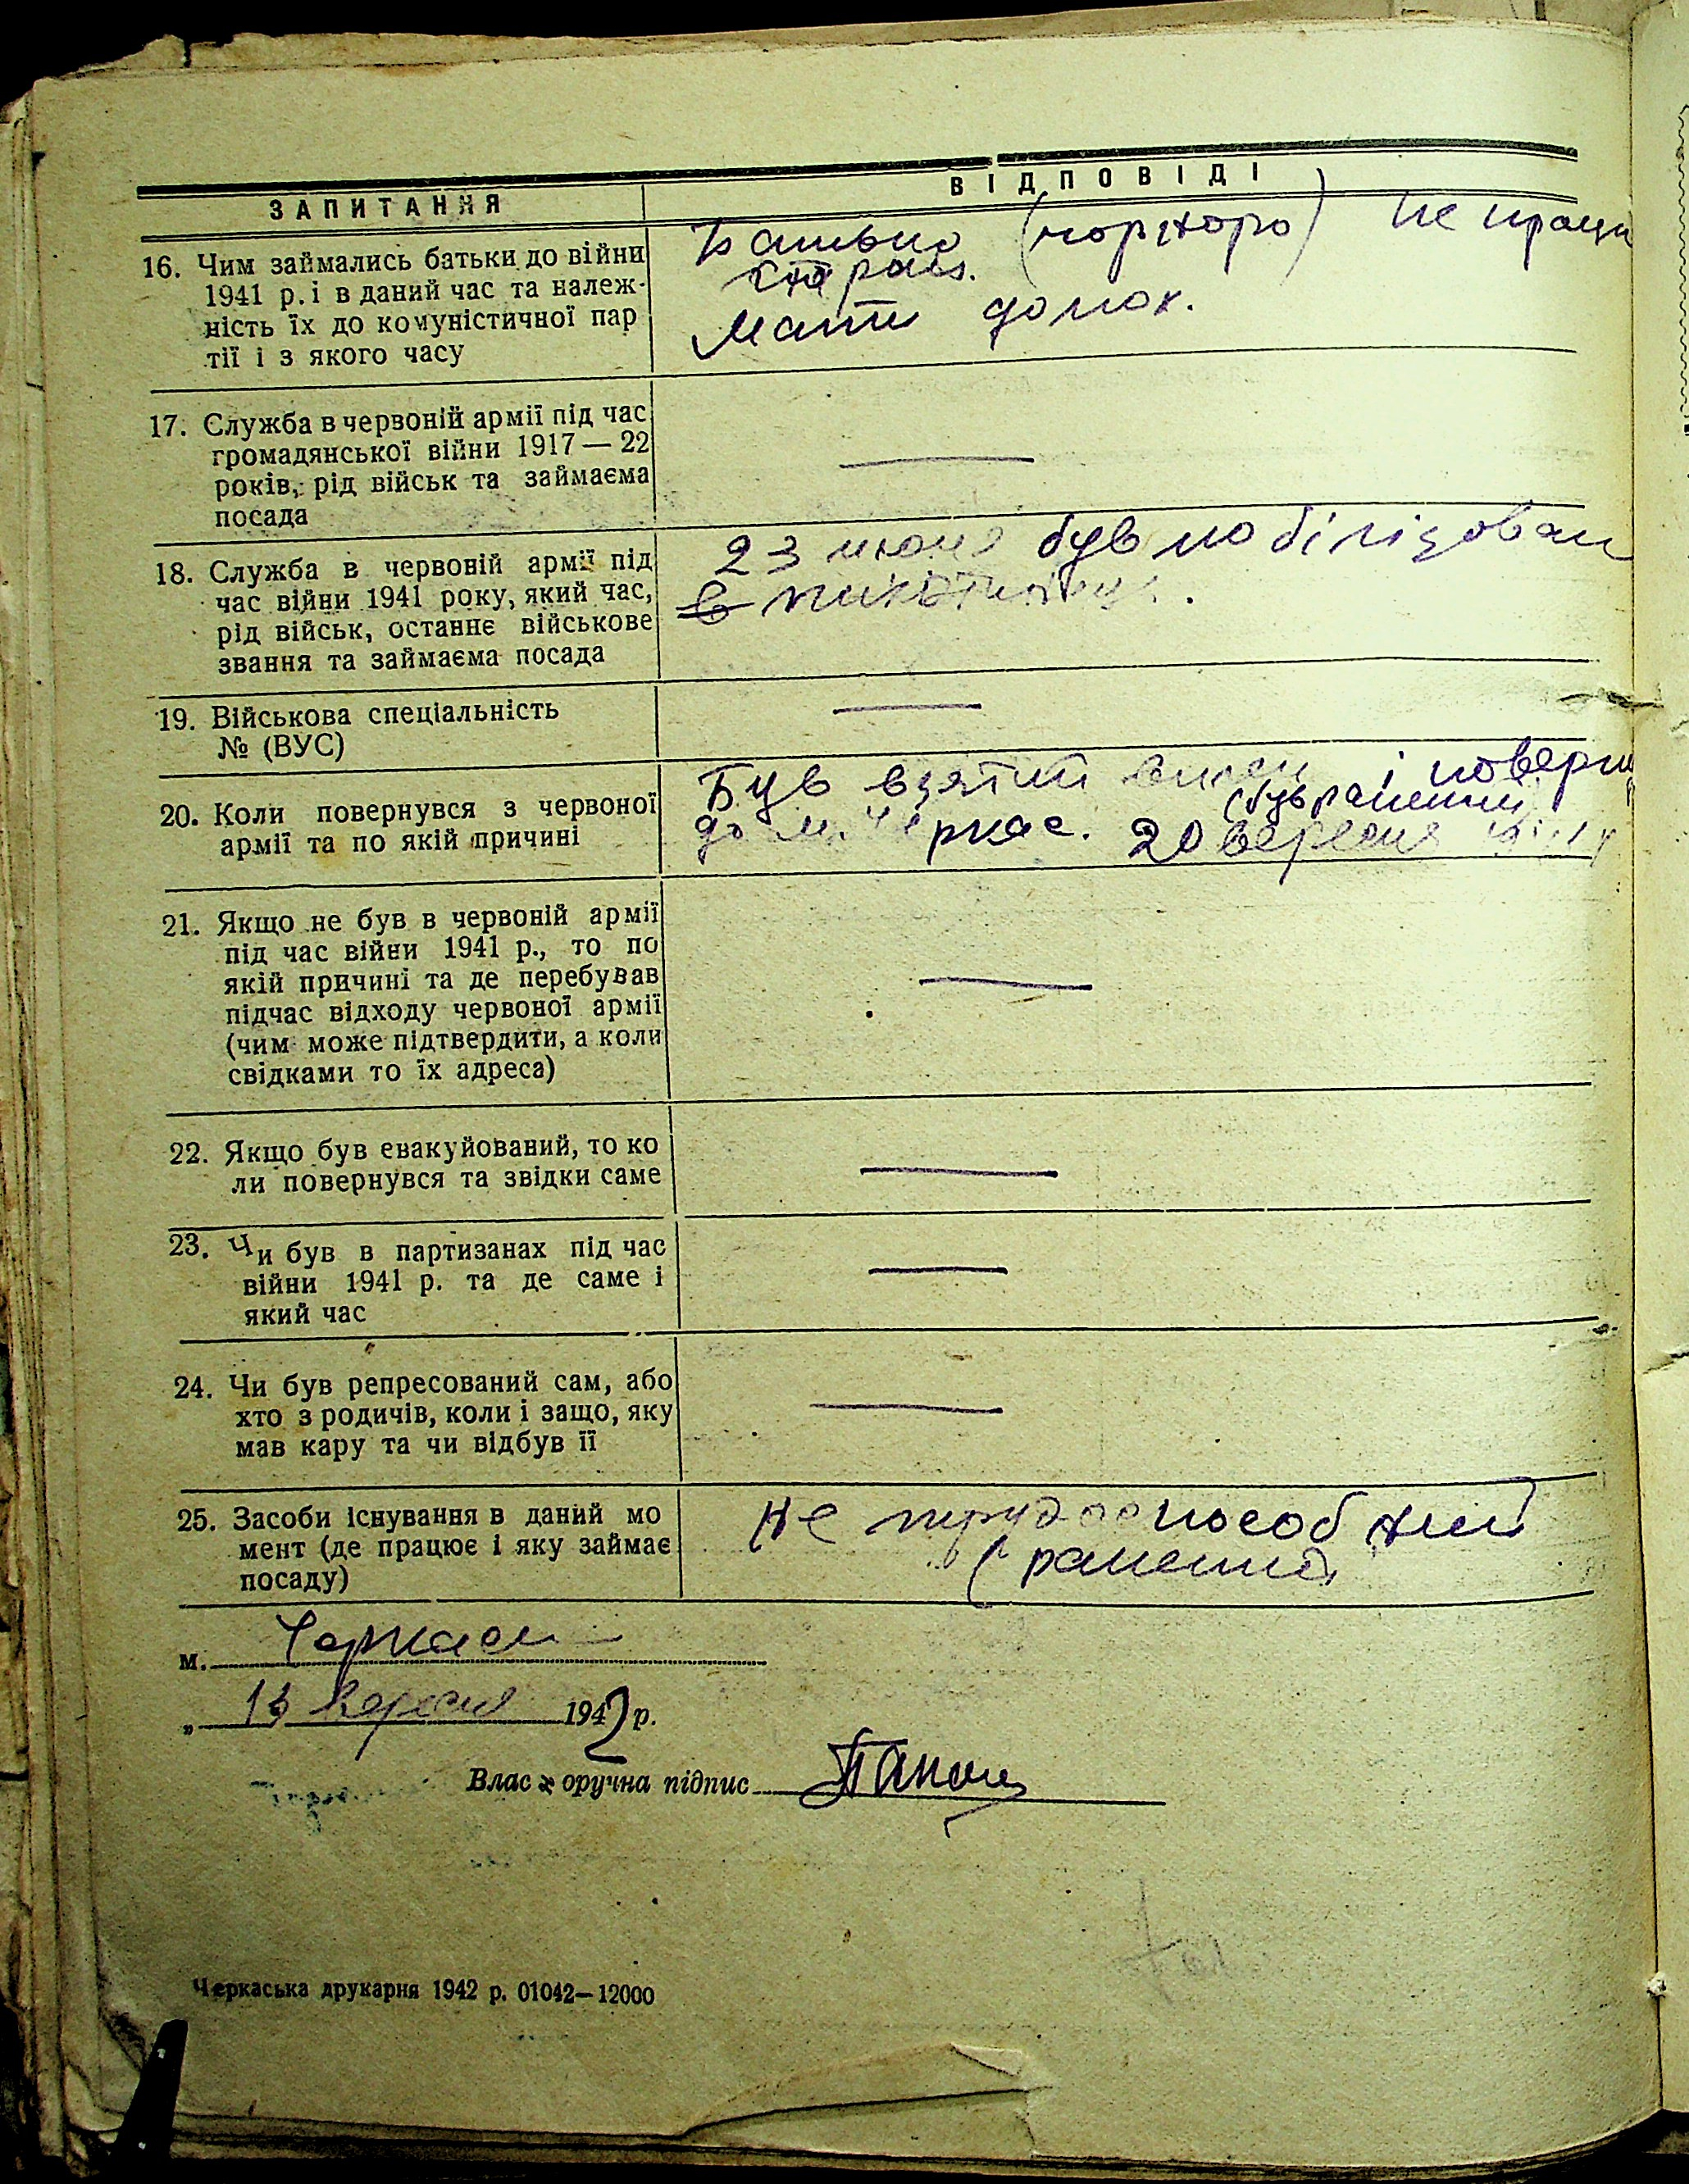 ЗАПИТАННЯ
ВІДПОВІДІ
16. Чим займались батьки до війни
1941 р. і в даний час та належ-
ність їх до комуністичної пар
тії і з якого часу
Батько не праци
стар
Мати домох.
17. Служба в червоній армії під час
громадянської війни 1917 — 22
років, рід військ та займаєма
посада
—
18. Служба в червоній армії під
час війни 1941 року, який час,
рід військ, останнє військове
звання та займаєма посада
23 июня був мобілізован
в
19. Військова спеціальність
№ (ВУС)
—
20. Коли повернувся з червоної
армії та по якій причині
Був взятий і поверну
(був раненний
до м. Черкас. 20 вересня
21. Якщо не був в червоній армії
під час війни 1941 р., то по
якій причині та де перебував
підчас відходу червоної армії
(чим може підтвердити, а коли
свідками то їх адреса)
—
22. Якщо був евакуйований, то ко
ли повернувся та звідки саме
—
23. Чи був в партизанах під час
війни 1941 р. та де саме і
який час
—
24. Чи був репресований сам, або
хто з родичів, коли і защо, яку
мав кару та чи відбув її
—
25. Засоби існування в даний мо
мент (де працює і яку займає
посаду)
не трудоспособний
(раненний
м. Черкаси
„ 13 вересня 1942 р.
Влас оручна підпис
Черкаська друкарня 1942 р. 01042—12000